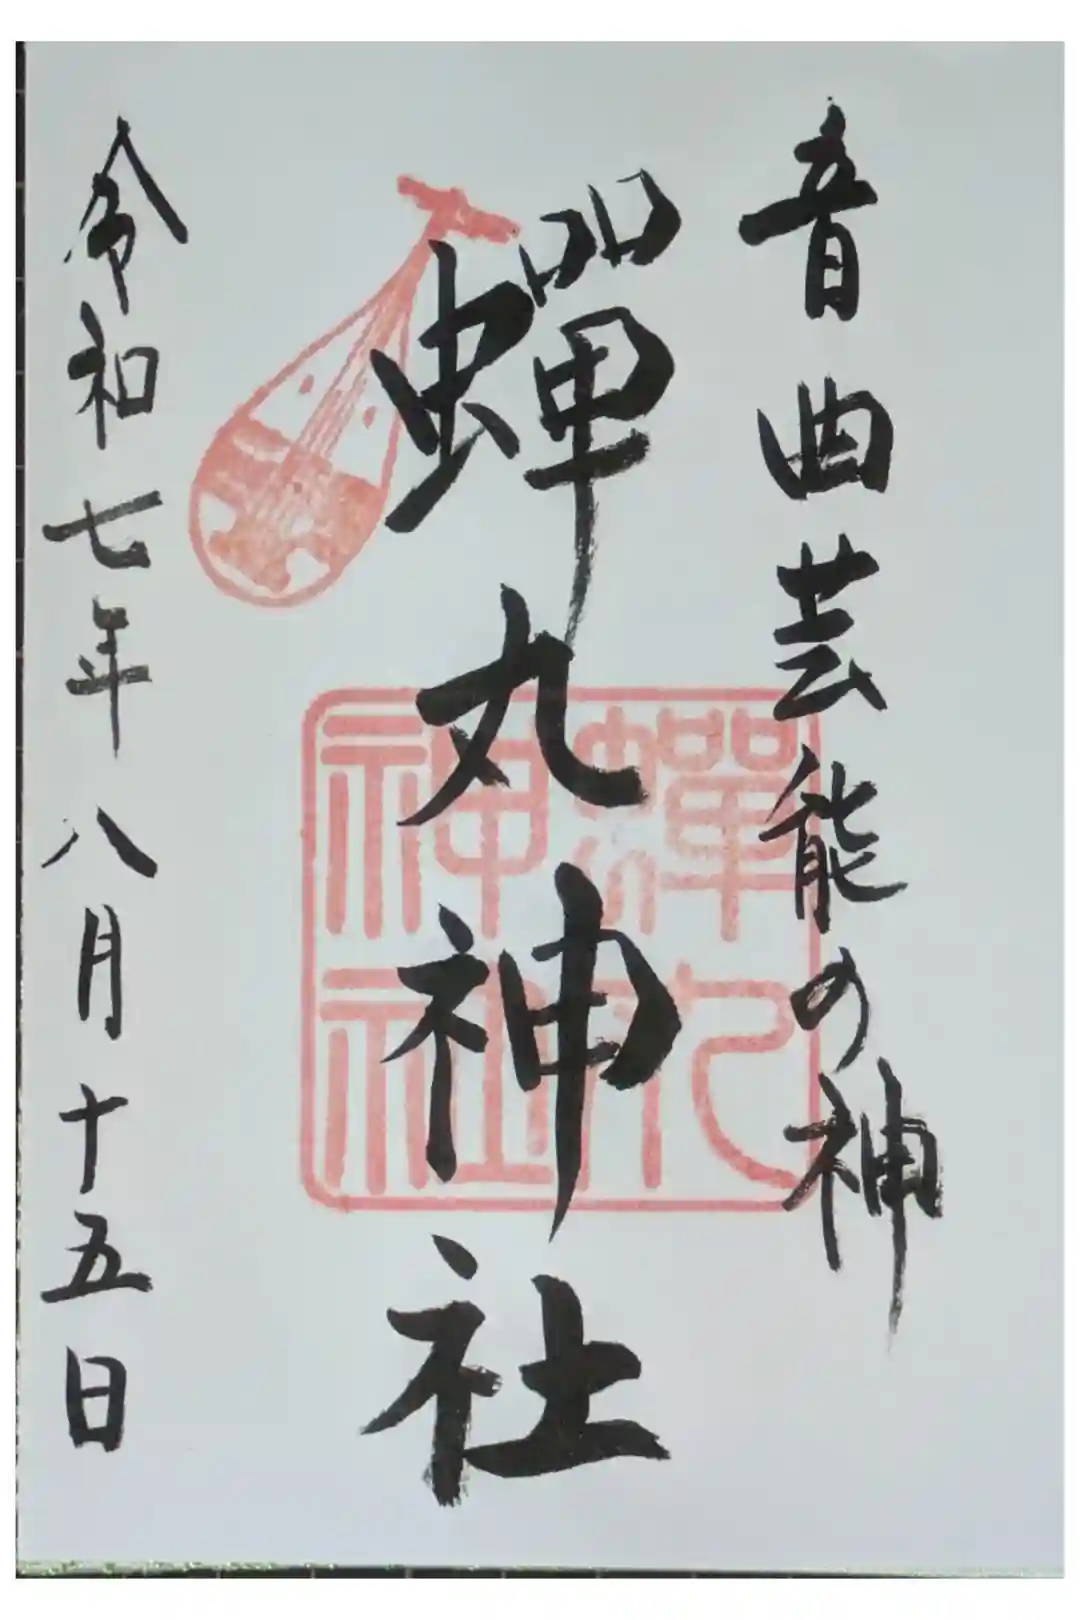 音曲芸能の神
蟬丸神社
蟬丸
神社
令和七年八月十五日